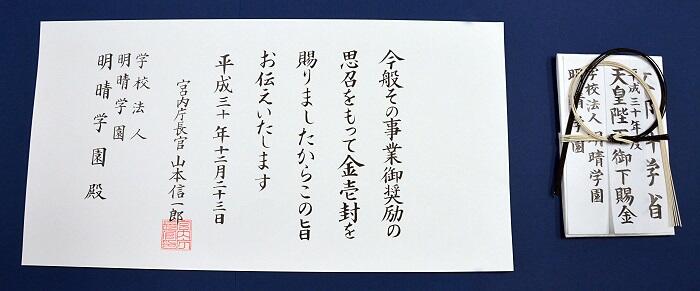 今般その事業御奨励の
思召をもって金壱封を
賜りましたからこの旨
お伝えいたします
平成三十年十二月二十三日
宮内庁長官 山本信一郎
学校法人
明晴学園
明晴学園殿
学省
成三十年度
天皇陛下御下賜金
学校法人明晴学園
明晴学園